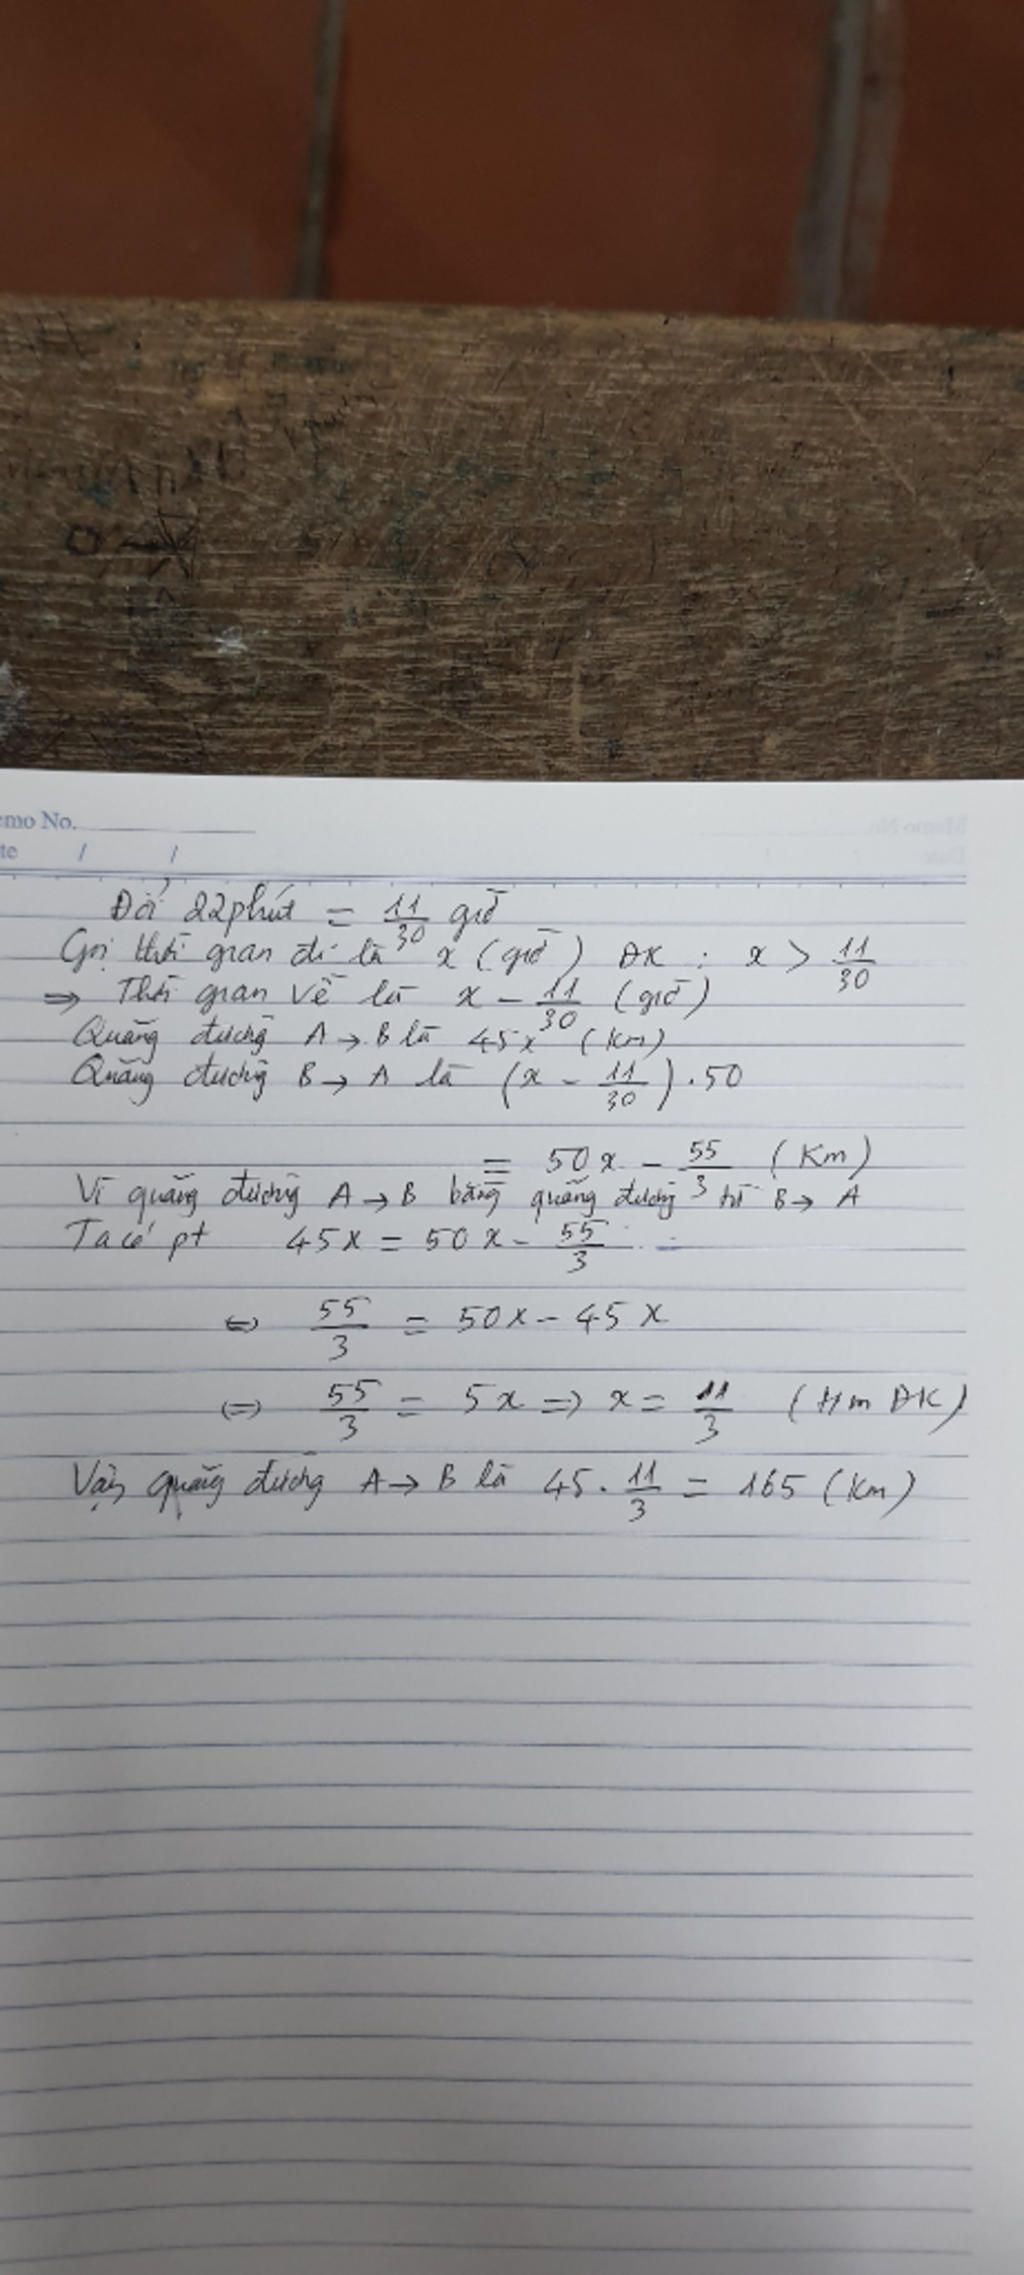 emo No.
te / /
Đổi 22 phút = 11/30 giờ
Gọi thời gian đi là x (giờ) ĐK : x > 11/30
=> Thời gian về là x - 11/30 (giờ)
Quãng đường A → B là 45x (Km)
Quãng đường B → A là (x - 11/30) . 50
= 50x - 55/3 (Km)
Vì quãng đường A → B bằng quãng đường từ B → A
Ta có pt 45x = 50x - 55/3
<=> 55/3 = 50x - 45x
<=> 55/3 = 5x => x = 11/3 (tm ĐK)
Vậy quãng đường A → B là 45 . 11/3 = 165 (Km)